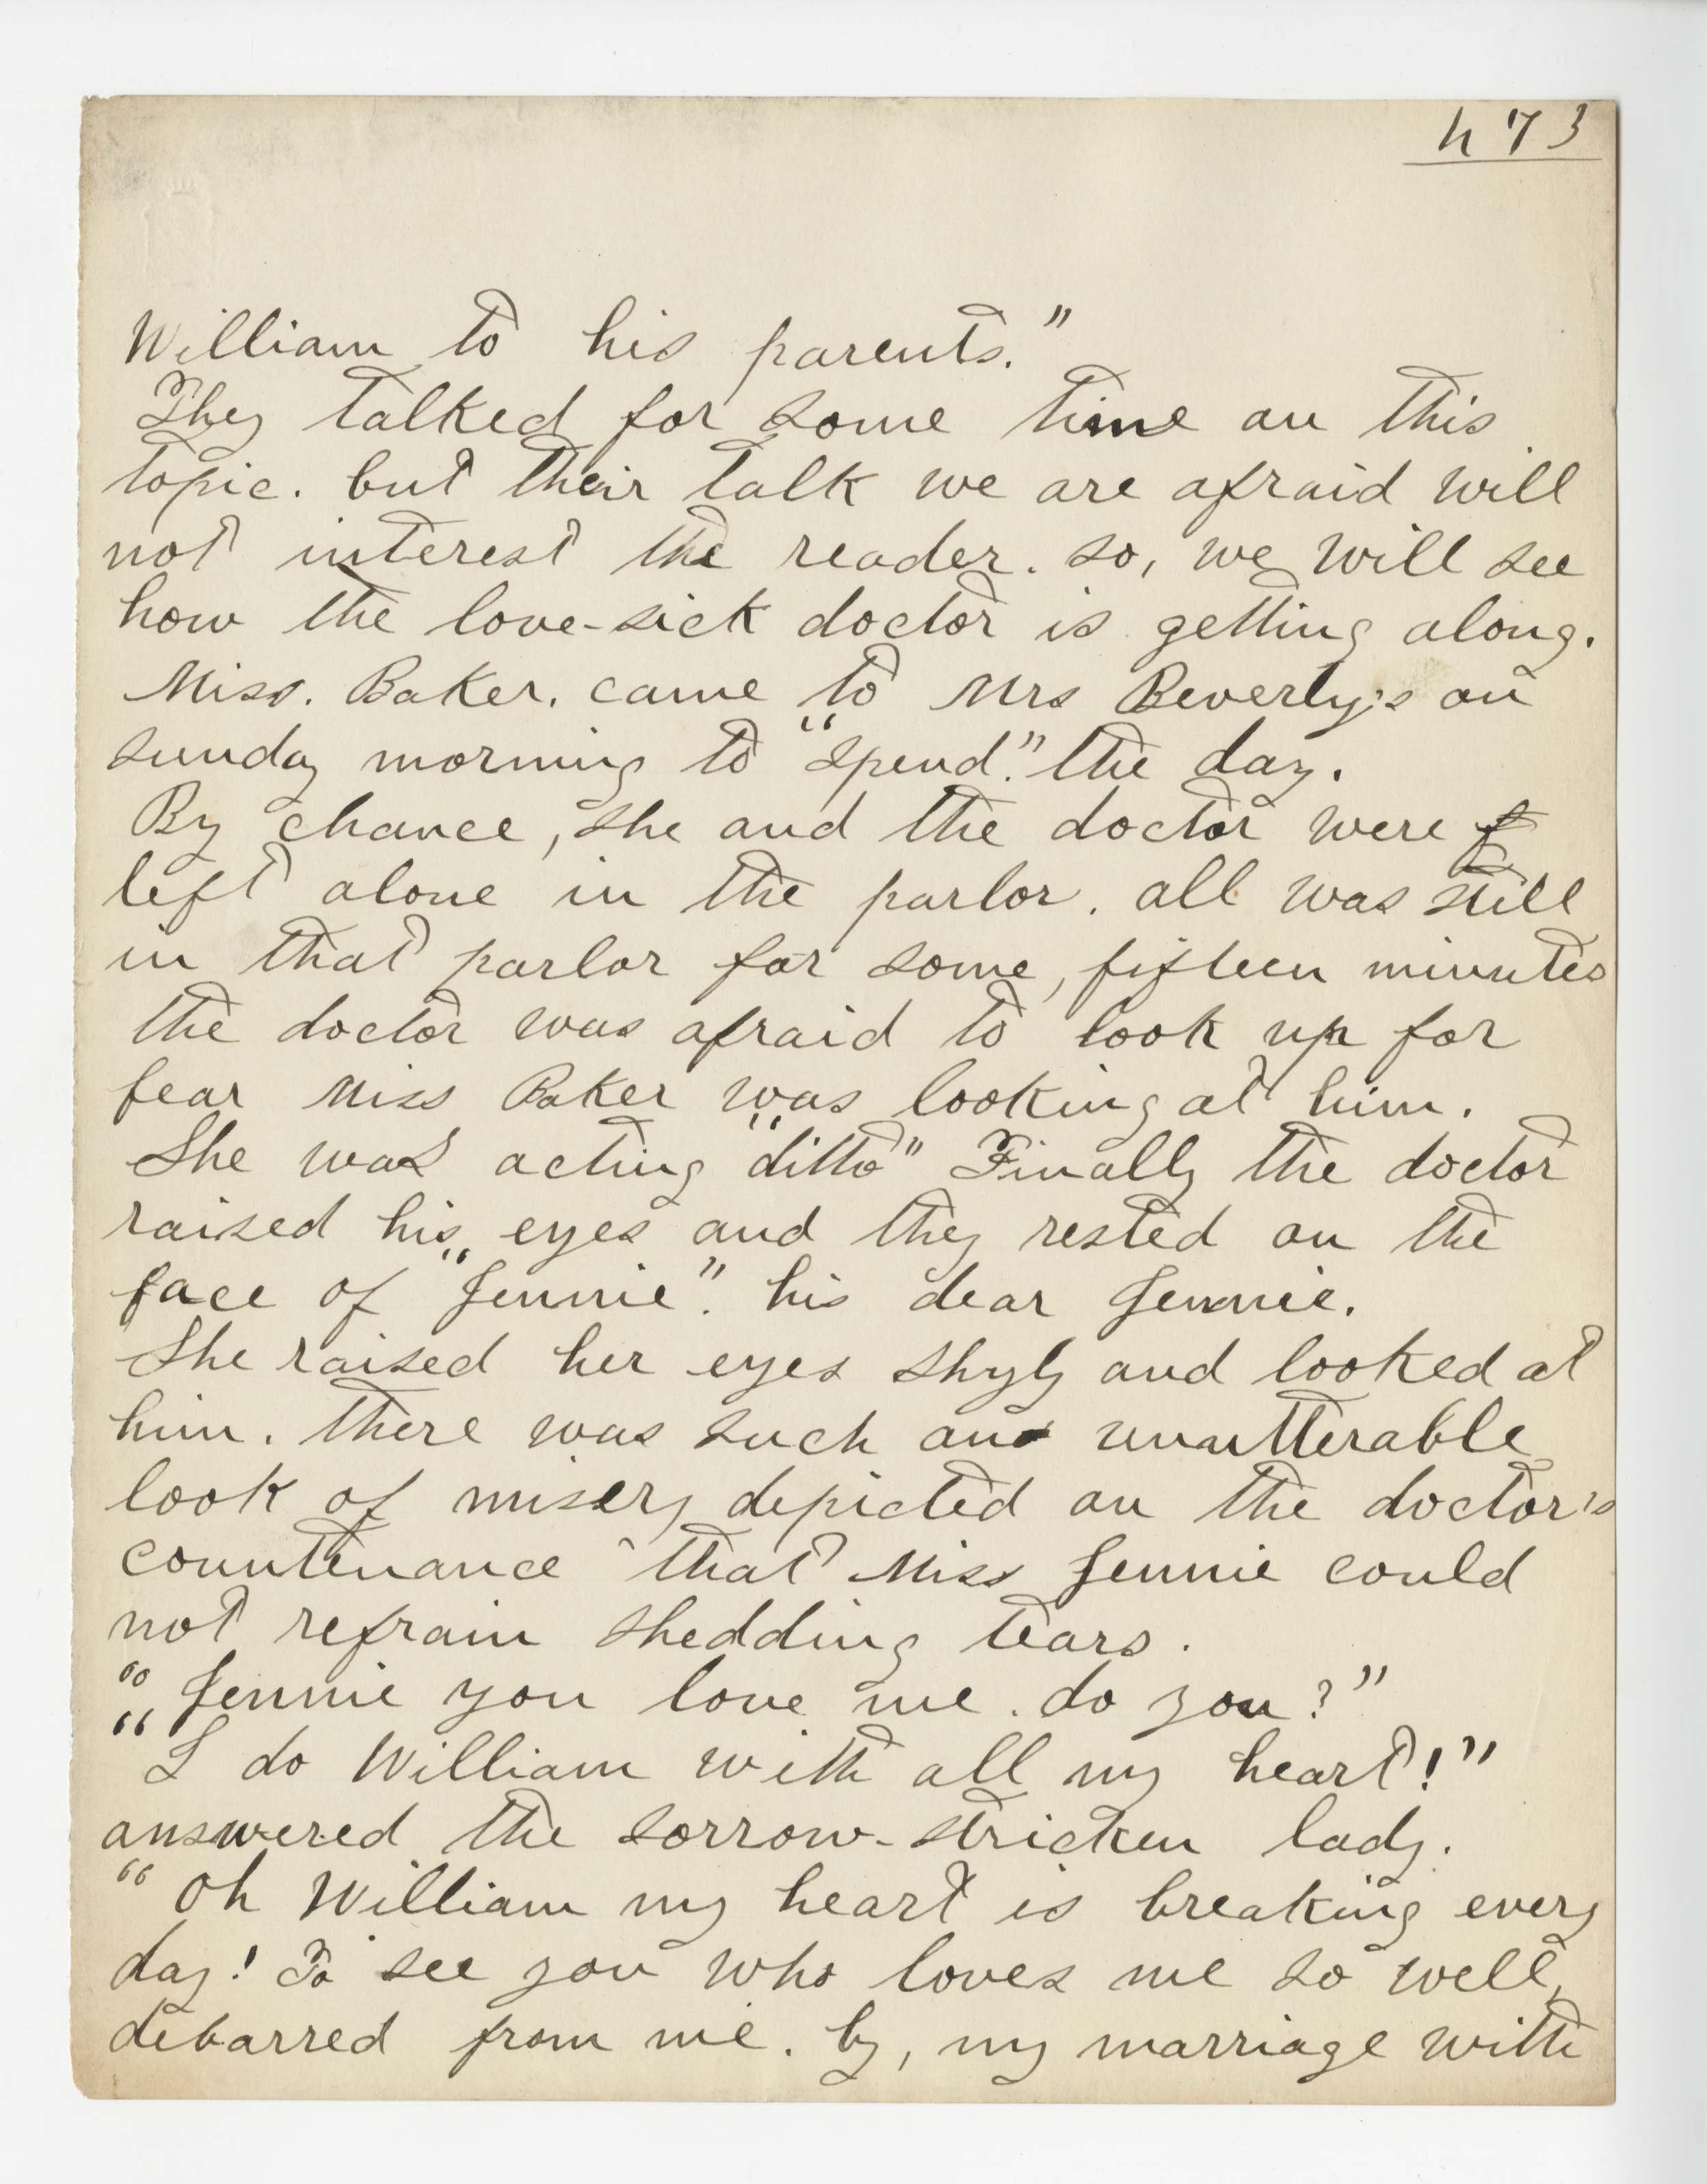 473
William to his parents."
They talked for some time on this
topic. but their talk we are afraid will
not interest the reader. so, we will see
how the love-sick doctor is getting along.
Miss. Baker. came to Mrs Beverly's on
sunday morning to "spend." the day.
By chance, she and the doctor were
left alone in the parlor. all was still
in that parlor for some, fifteen minutes
the doctor was afraid to look up for
fear Miss Baker was looking at him.
She was acting "ditto" Finally the doctor
raised his eyes and they rested on the
face of "Jennie". his dear Jennie.
She raised her eyes shyly and looked at
him. there was such an unutterable
look of misery depicted on the doctor's
countenance that Miss Jennie could
not refrain shedding tears.
"Jennie you love me. do you?"
"I do William with all my heart!"
answered the sorrow-stricken lady.
"Oh William my heart is breaking every
day! To see you who loves me so well,
debarred from me. by, my marriage with